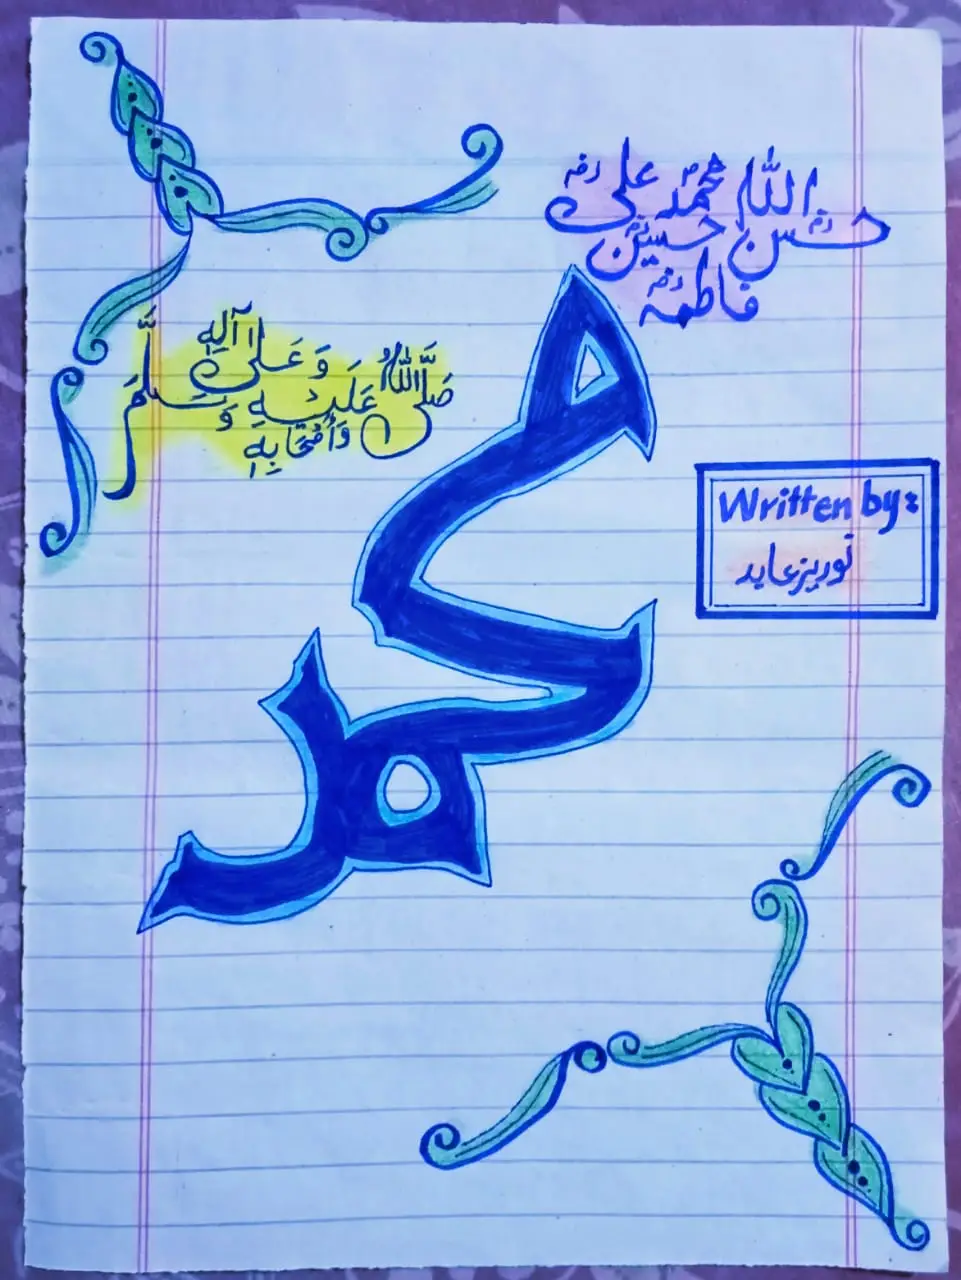 اللہ محمدؐ علیؓ
حسنؓ حسینؓ
فاطمہؓ
صَلَّی اللّٰہُ عَلَیْہِ وَعَلٰی آلِہٖ وَاَصْحَابِہٖ وَسَلَّمَ
محمد
Written by:
توریز عابد